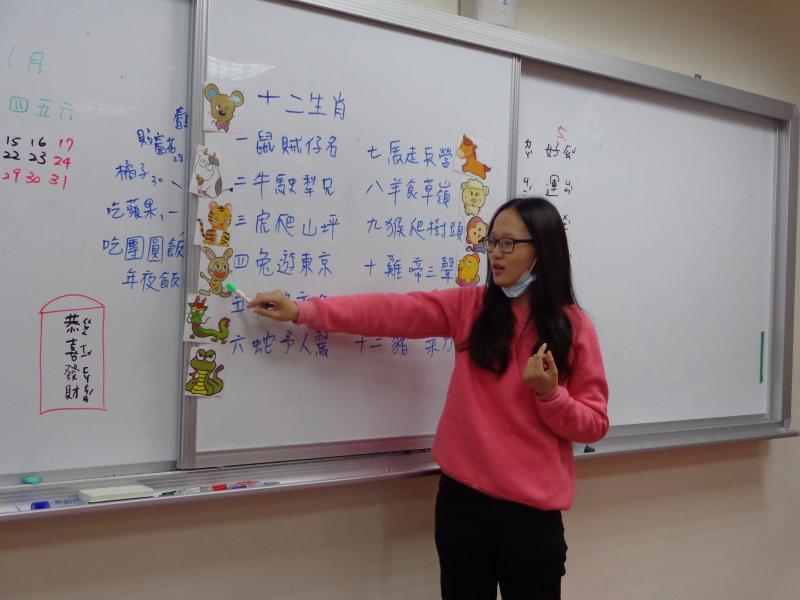 1月
四五六
15 16 17
22 23 24
29 30 31
貼窗花
橘子
吃蘋果
吃團圓飯
年夜飯
恭ㄍㄨㄥ
喜ㄒㄧˇ
發ㄈㄚ
財ㄘㄞˊ
十二生肖
一鼠賊仔名
二牛駛犁兄
三虎爬山坪
四兔遊東京
五
六蛇予人驚
七馬走兵營
八羊食草嶺
九猴爬樹頭
十雞啼三聲
十二豬菜刀
5
好
運